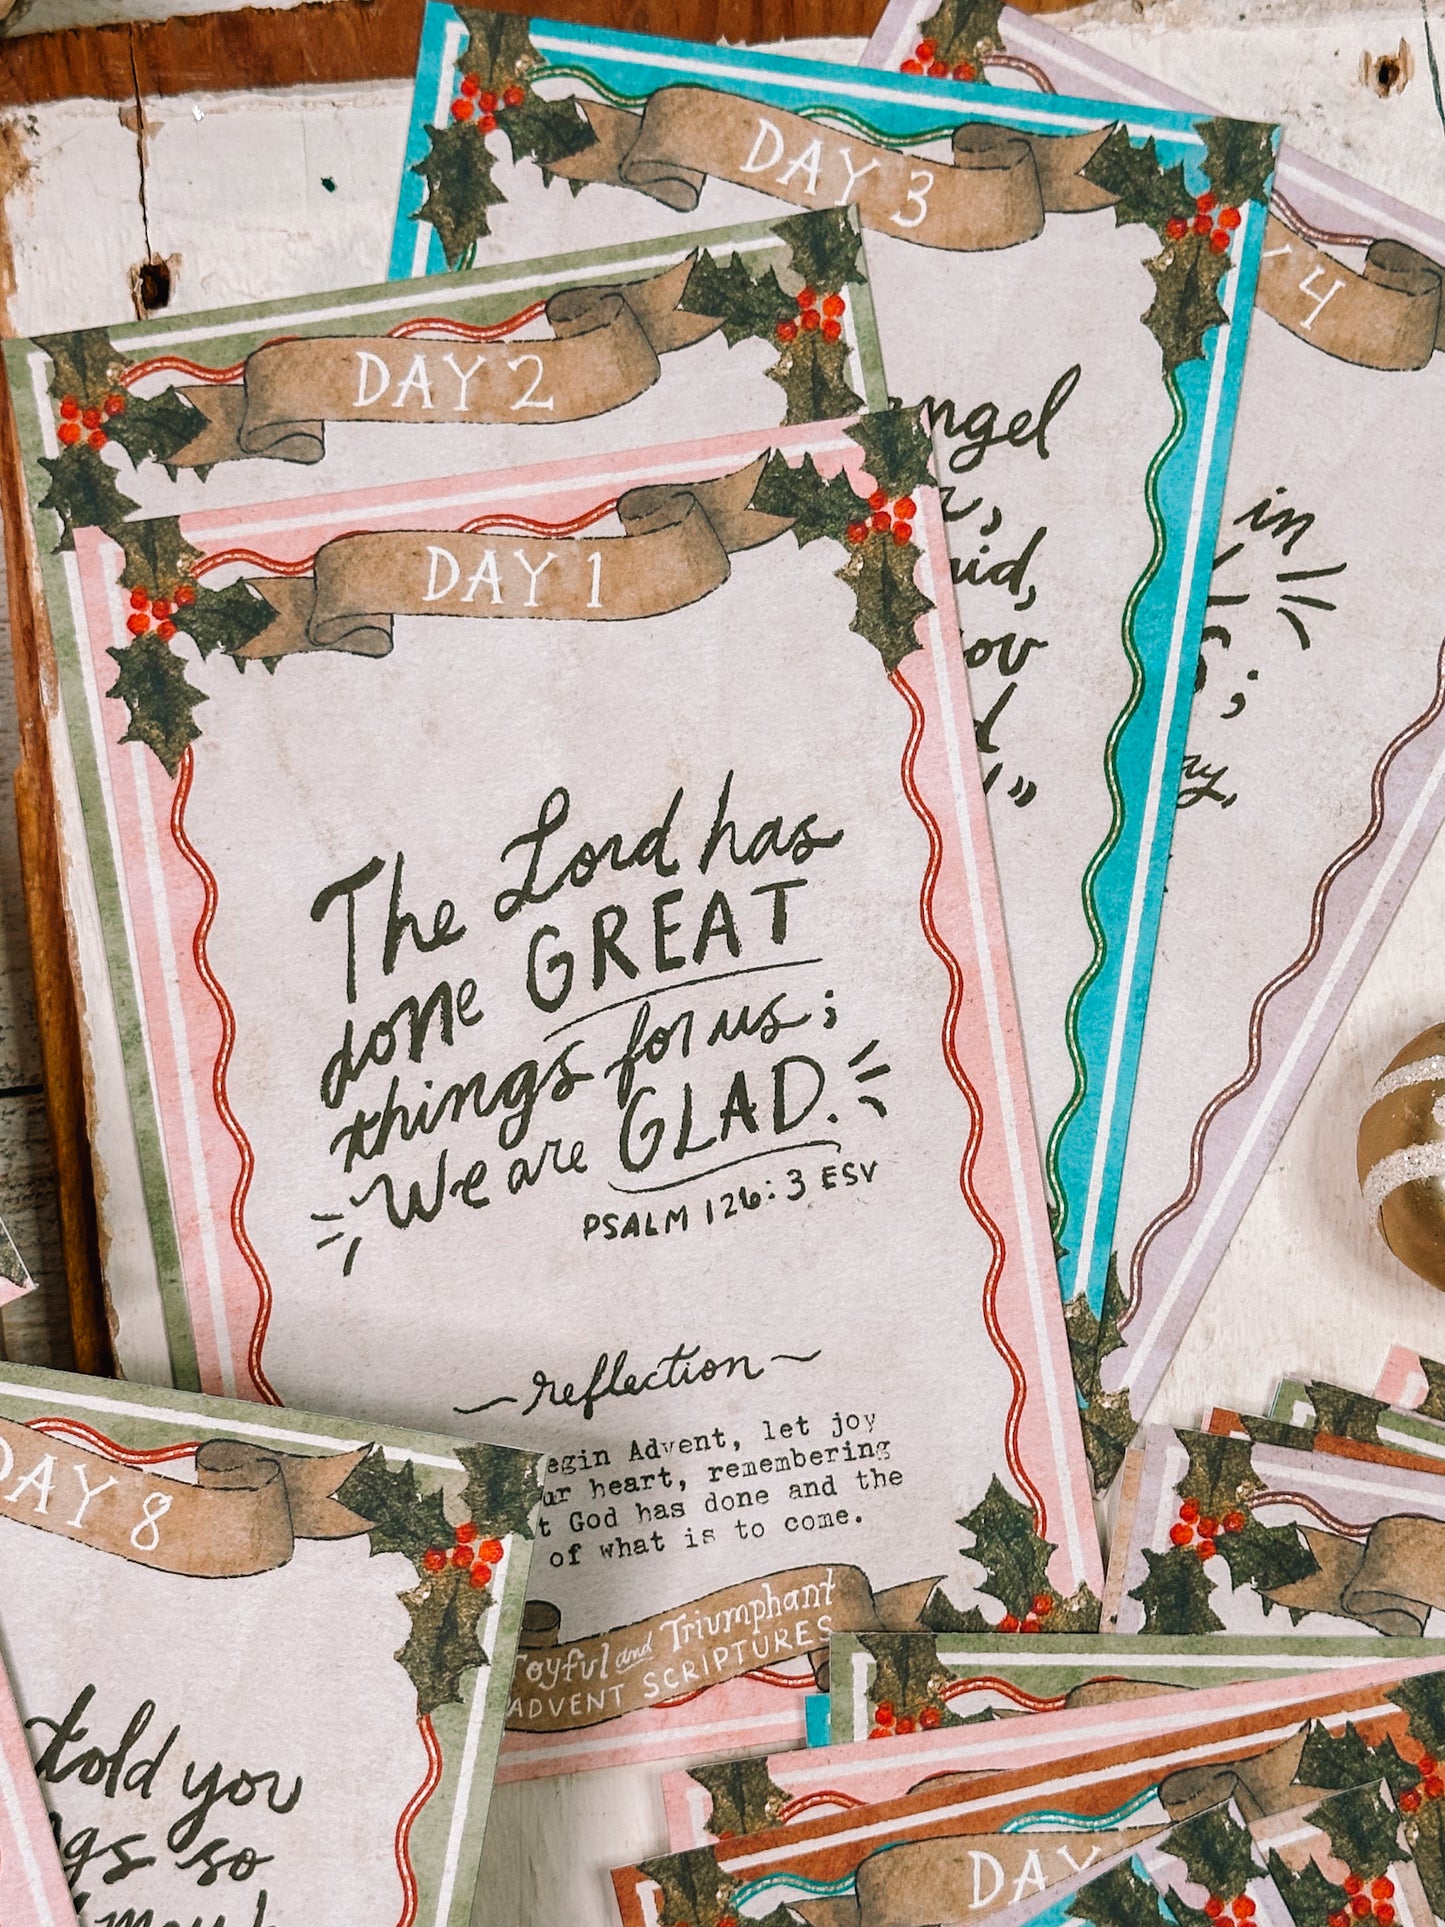 DAY 3
4
DAY 2
DAY 1
angel
in
The Lord has
done GREAT
things for us;
We are GLAD.
PSALM 126:3 ESV
reflection
Advent, let joy
heart, remembering
God has done and the
of what is to come.
Joyful and Triumphant
ADVENT SCRIPTURES
DAY 8
told you
so